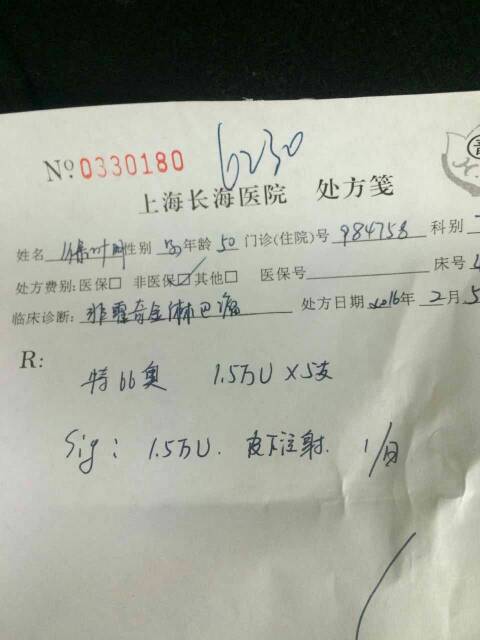 6230
№ 0330180
上海长海医院 处方笺
姓名 性别 男 年龄 50 门诊(住院)号 984758 科别
处方费别: 医保□ 非医保☑ 其他□ 医保号 床号
临床诊断: 非霍奇金淋巴瘤 处方日期 2016年 2月 5
R:
特 奥 1.5万U×5支
Sig: 1.5万U. 皮下注射. 1/日